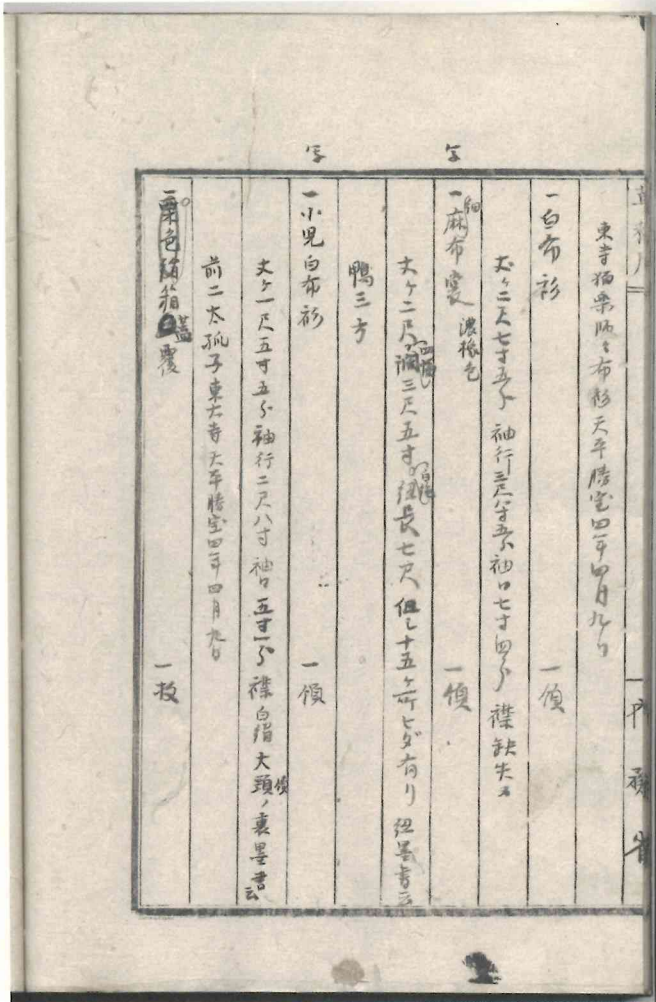 写
写
東寺 布衫 天平勝宝四年四月九日
一白布衫 一領
丈ケ二尺七寸五分 袖行三尺 寸五分 袖口七寸四分 襟缺失ス
一細麻布裳 濃 色 一領
丈ケ二尺 三尺五寸 紐長七尺 但シ十五ケ所ヒダ有リ 紐墨書云
鴨三方
一小児白布衫 一領
丈ケ一尺五寸五分 袖行二尺八寸 袖口五寸一分 襟白絹 大領ノ裏墨書云
前二太孤子東大寺天平勝宝四年四月九日
一栗色 箱蓋覆 一枚